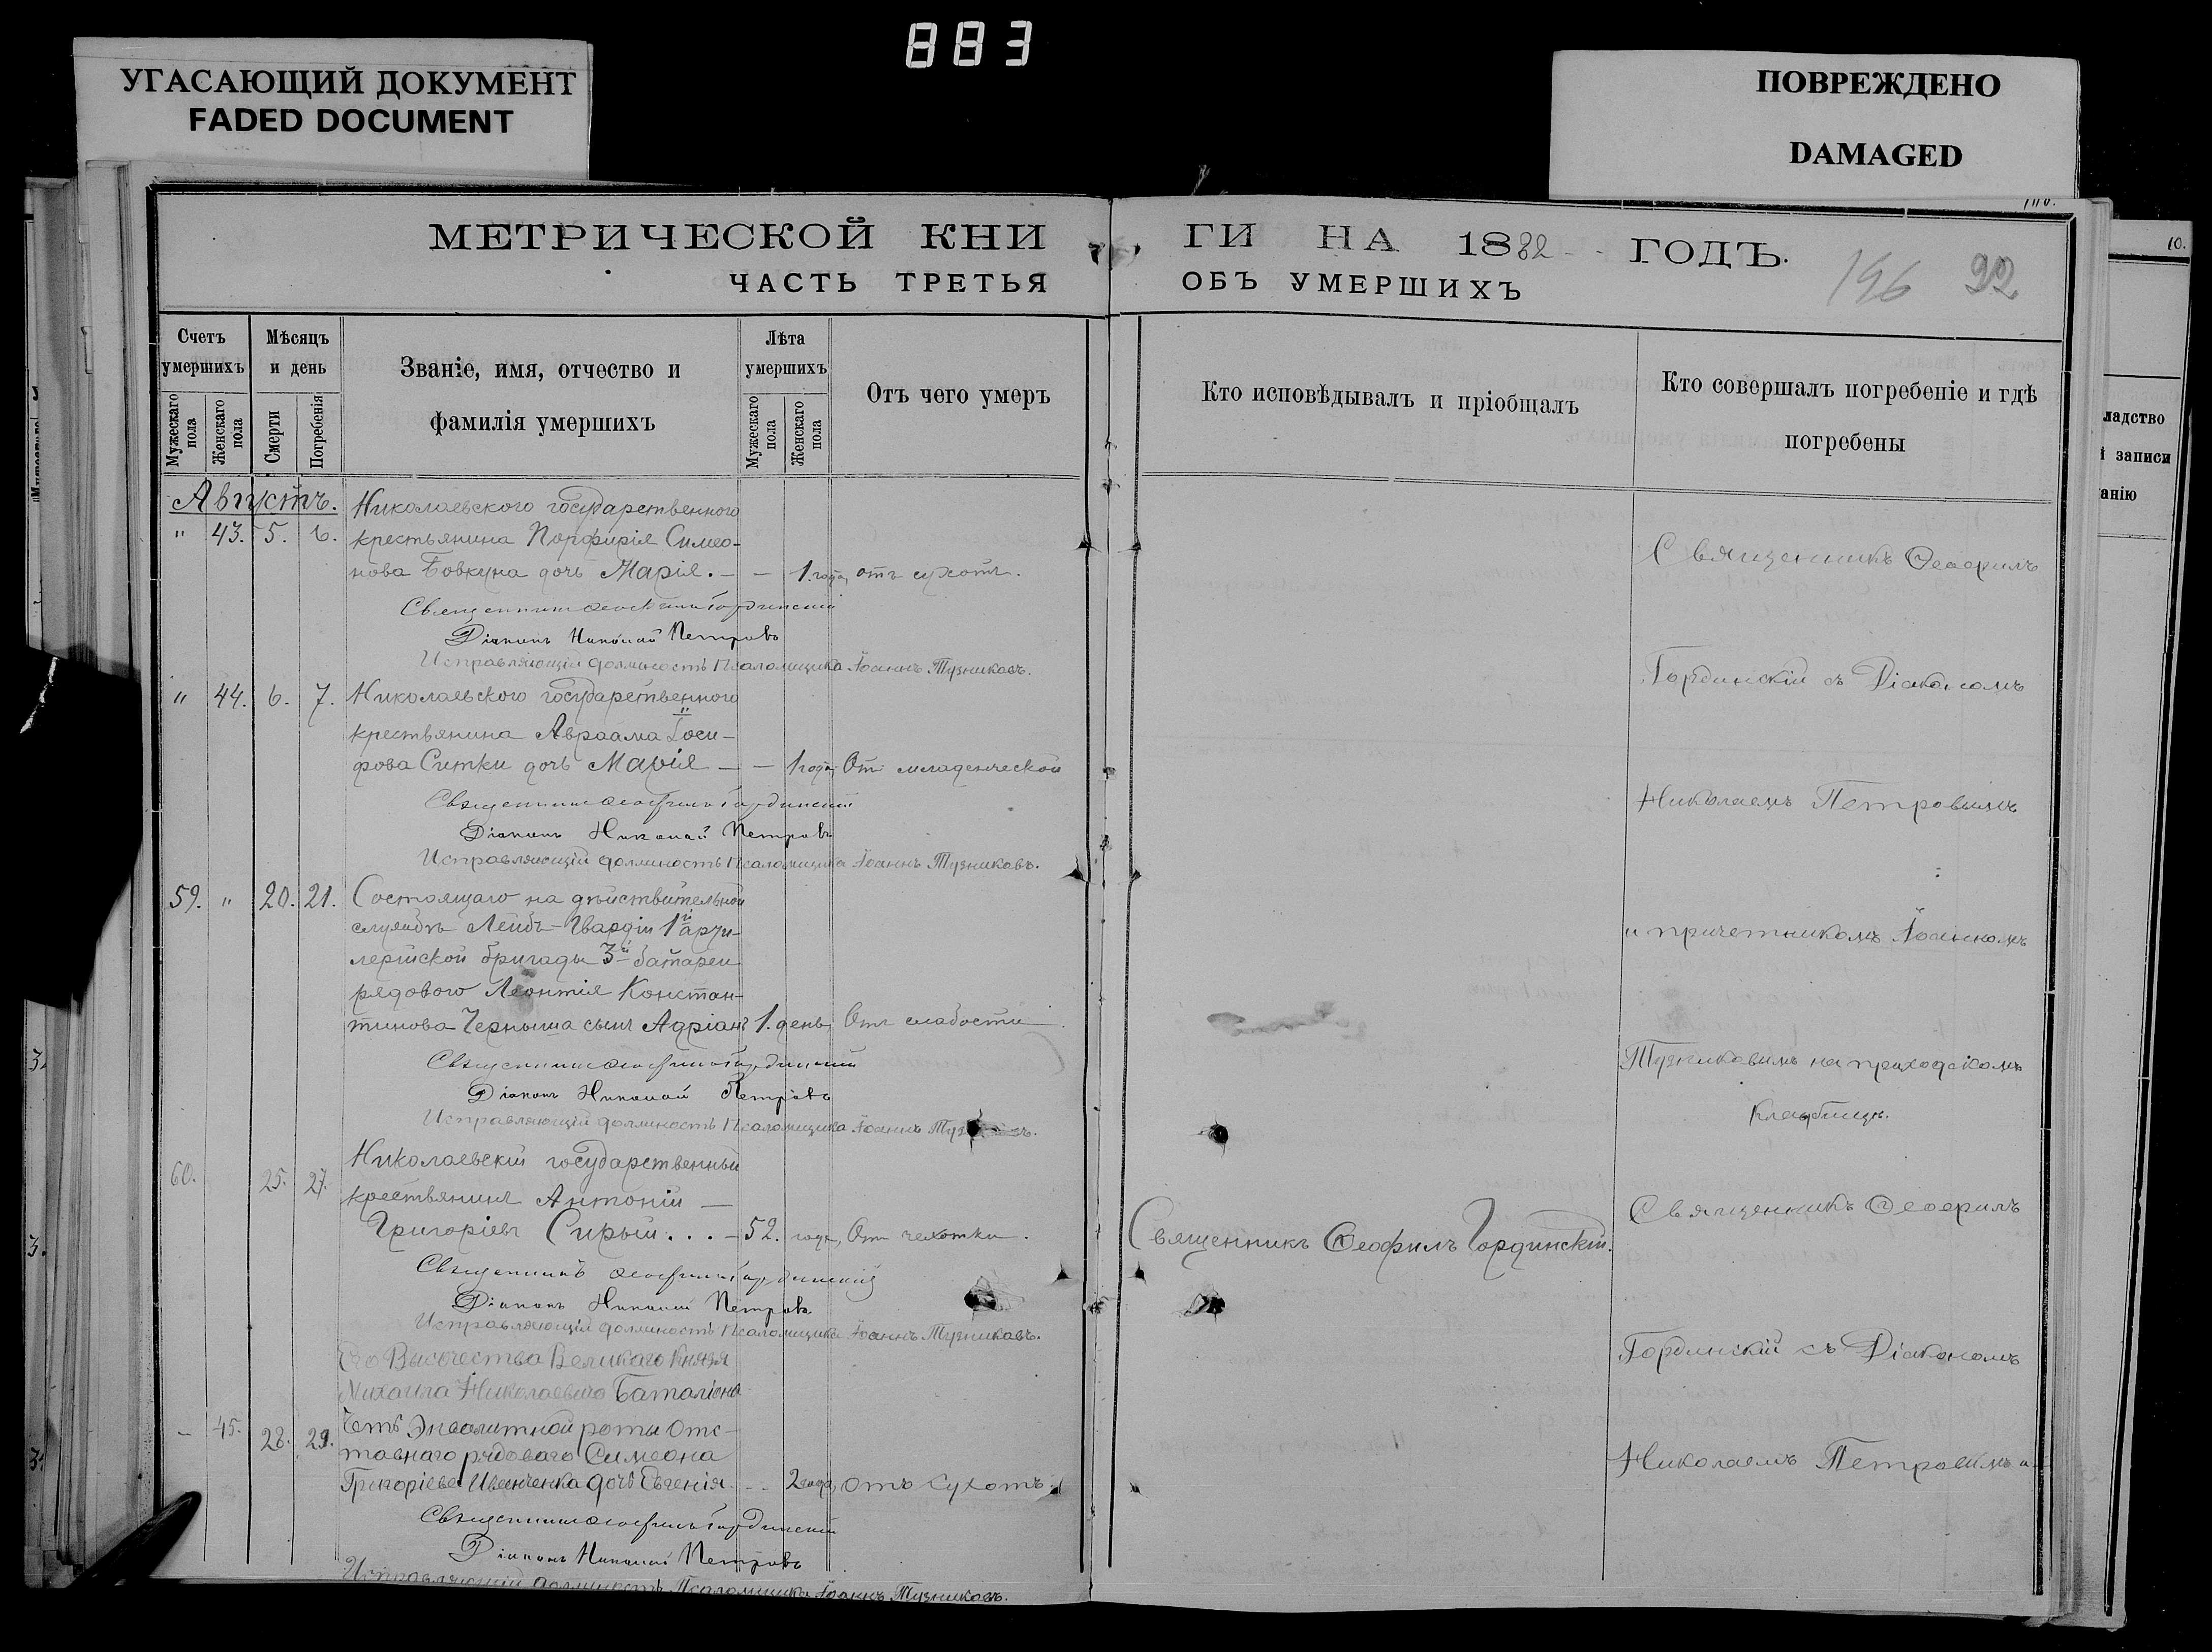 883
УГАСАЮЩИЙ ДОКУМЕНТ
FADED DOCUMENT
ПОВРЕЖДЕНО
DAMAGED
МЕТРИЧЕСКОЙ КНИ
ГИ НА 1882 ГОДЪ.
ЧАСТЬ ТРЕТЬЯ
ОБЪ УМЕРШИХЪ
196 92
10.
Счетъ умершихъ
Мѣсяцъ и день
Званіе, имя, отчество и фамилія умершихъ
Лѣта умершихъ
Отъ чего умеръ
Кто исповѣдывалъ и пріобщалъ
Кто совершалъ погребеніе и гдѣ погребены
Мужескаго пола
Женскаго пола
Смерти
Погребенія
Мужескаго пола
Женскаго пола
ладство
записи
анію
Августъ.
Николаевского государственного
" 43. 5. 6. крестьянина Порфирія Симео-
нова Бовкуна дочь Марія. — — 1. года, отъ сухотъ.
Священникъ Ѳеофилъ Гординскій
Діаконъ Николай Петровъ
Исправляющій должность Псаломщика Іоаннъ Тузниковъ.
" 44. 6. 7. Николаевского государственного
крестьянина Авраама Іоси-
фова Ситки дочь Марія — — 1 года, От младенческой
Священникъ Ѳеофилъ Гординскій
Діаконъ Николай Петровъ
Исправляющій должность Псаломщика Іоаннъ Тузниковъ.
59. " 20. 21. Состоящаго на дѣйствительной
службѣ Лейбъ-Гвардіи 1й арти-
лерійской бригады 3й батареи
рядового Леонтія Констан-
тинова Черныша сынъ Адріанъ 1. день, Отъ слабости
Священникъ Ѳеофилъ Гординскій
Діаконъ Николай Петровъ
Исправляющій должность Псаломщика Іоаннъ
60. 25. 27. Николаевскій государственный
крестьянинъ Антоній —
Григоріевъ Сирый... — 52. года, От чахотки.
Священникъ Ѳеофилъ Гординскій
Діаконъ Николай Петровъ
Исправляющій должность Псаломщика Іоаннъ Тузниковъ.
Его Высочества Великаго Князя
Михаила Николаевича Баталіона
— 45. 28. 29. роты Отс-
тавнаго рядоваго Симеона
Григоріева Иванченка дочь Евгенія — 2 года, отъ сухотъ
Священникъ Ѳеофилъ Гординскій
Діаконъ Николай Петровъ
Исправляющій должность Псаломщика Іоаннъ Тузниковъ.
Священникъ Ѳеофилъ Гординскій.
Священникъ Ѳеофилъ
Гординскій съ Діакономъ
Николаемъ Петровымъ
и причетникомъ Іоанномъ
Тузниковымъ на приходскомъ
кладбищѣ.
Священникъ Ѳеофилъ
Гординскій съ Діакономъ
Николаемъ Петровымъ и